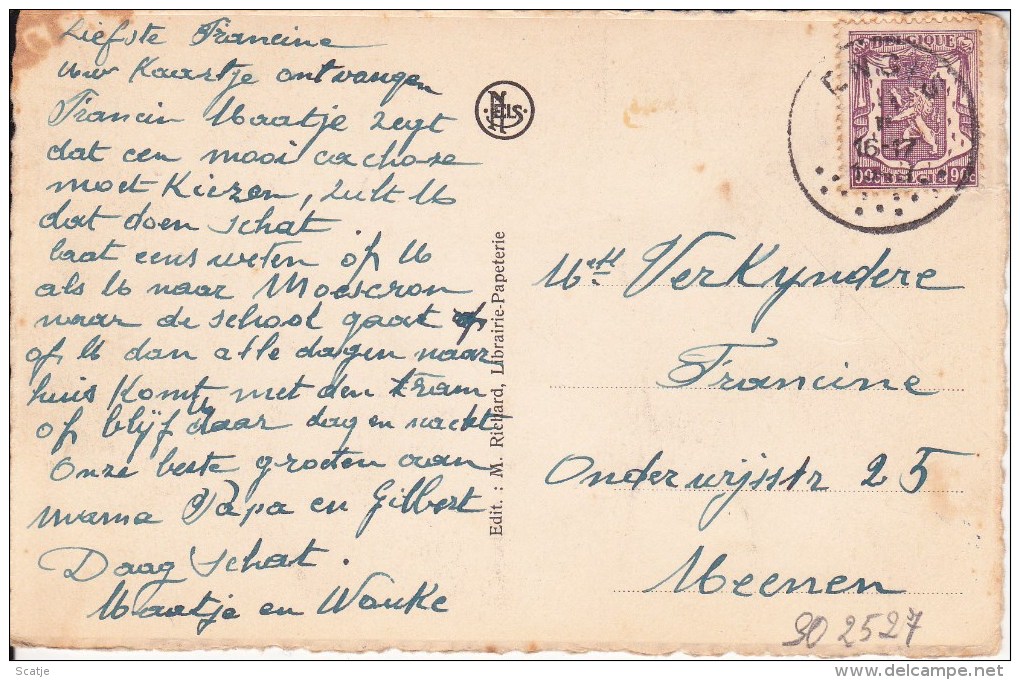 Liefste Francine
Uw Kaartje ontvangen
Francin Maatje zegt
dat een mooi cachoze
moet Kiezen, zult U
dat doen schat
laat eens weten of U
als U naar Moescron
naar de school gaat of
of U dan alle dagen naar
huis Komt met den tram
of blijft daar dag en nacht
Onze beste groeten aan
mama Papa en Gilbert
Daag schat.
Maatje en Wanke
NELS
Edit. : M. Richard, Librairie-Papeterie
BELGIQUE
16-17
90c BELGIE 90c
Verkyndere
Francine
Onderwijsstr 25
Meenen
902527
Scatje
www.delcampe.net